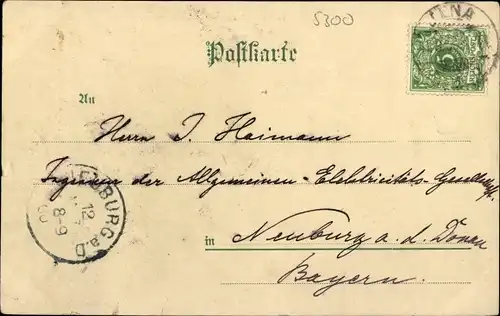 5300
JENA
Postkarte
An
Herrn J. Haimann
Ingenieur der Allgemeinen-Elektricitäts-Gesellschaft
in Neuburg a. d. Donau
Bayern.
NEUBURG a.D
12
8-9